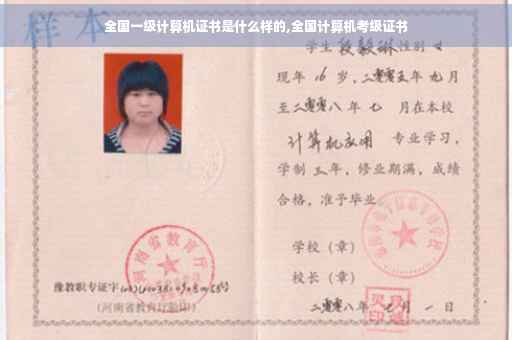 全国一级计算机证书是什么样的,全国计算机考级证书
样本
学生段毅琳性别女
现年16岁，二零零五年九月
至二零零八年七月在本校
计算机应用 专业学习，
学制三年，修业期满，成绩
合格，准予毕业
学校（章）
校长（章）
二零零八年七月一日
河南省教育厅
豫教职专证字
（河南省教育厅验印）